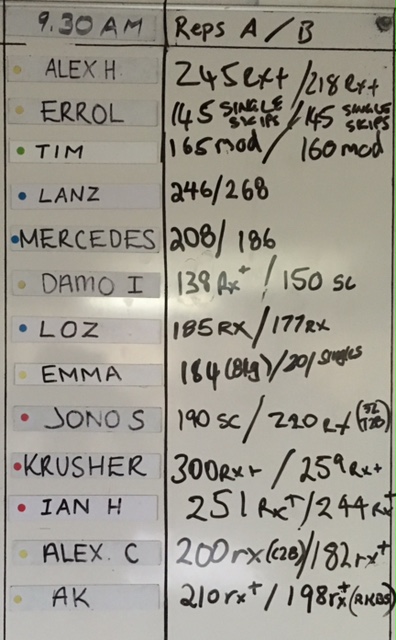 9.30 AM Reps A / B
ALEX H 245 Rx+ / 218 Rx+
ERROL 145 SINGLE SKIPS / 145 SINGLE SKIPS
TIM 165 mod / 160 mod
LANZ 246/268
MERCEDES 208/ 186
DAMO I 138 Rx+ / 150 SC
LOZ 185 RX / 177 RX
EMMA 184 / 201 singles
JONO S 190 SC / 220 Rx
KRUSHER 300 Rx+ / 259 Rx+
IAN H 251 Rx+ / 244 Rx+
ALEX. C 200 rx (C2B) / 182 rx+
AK 210 rx+ / 198 rx+